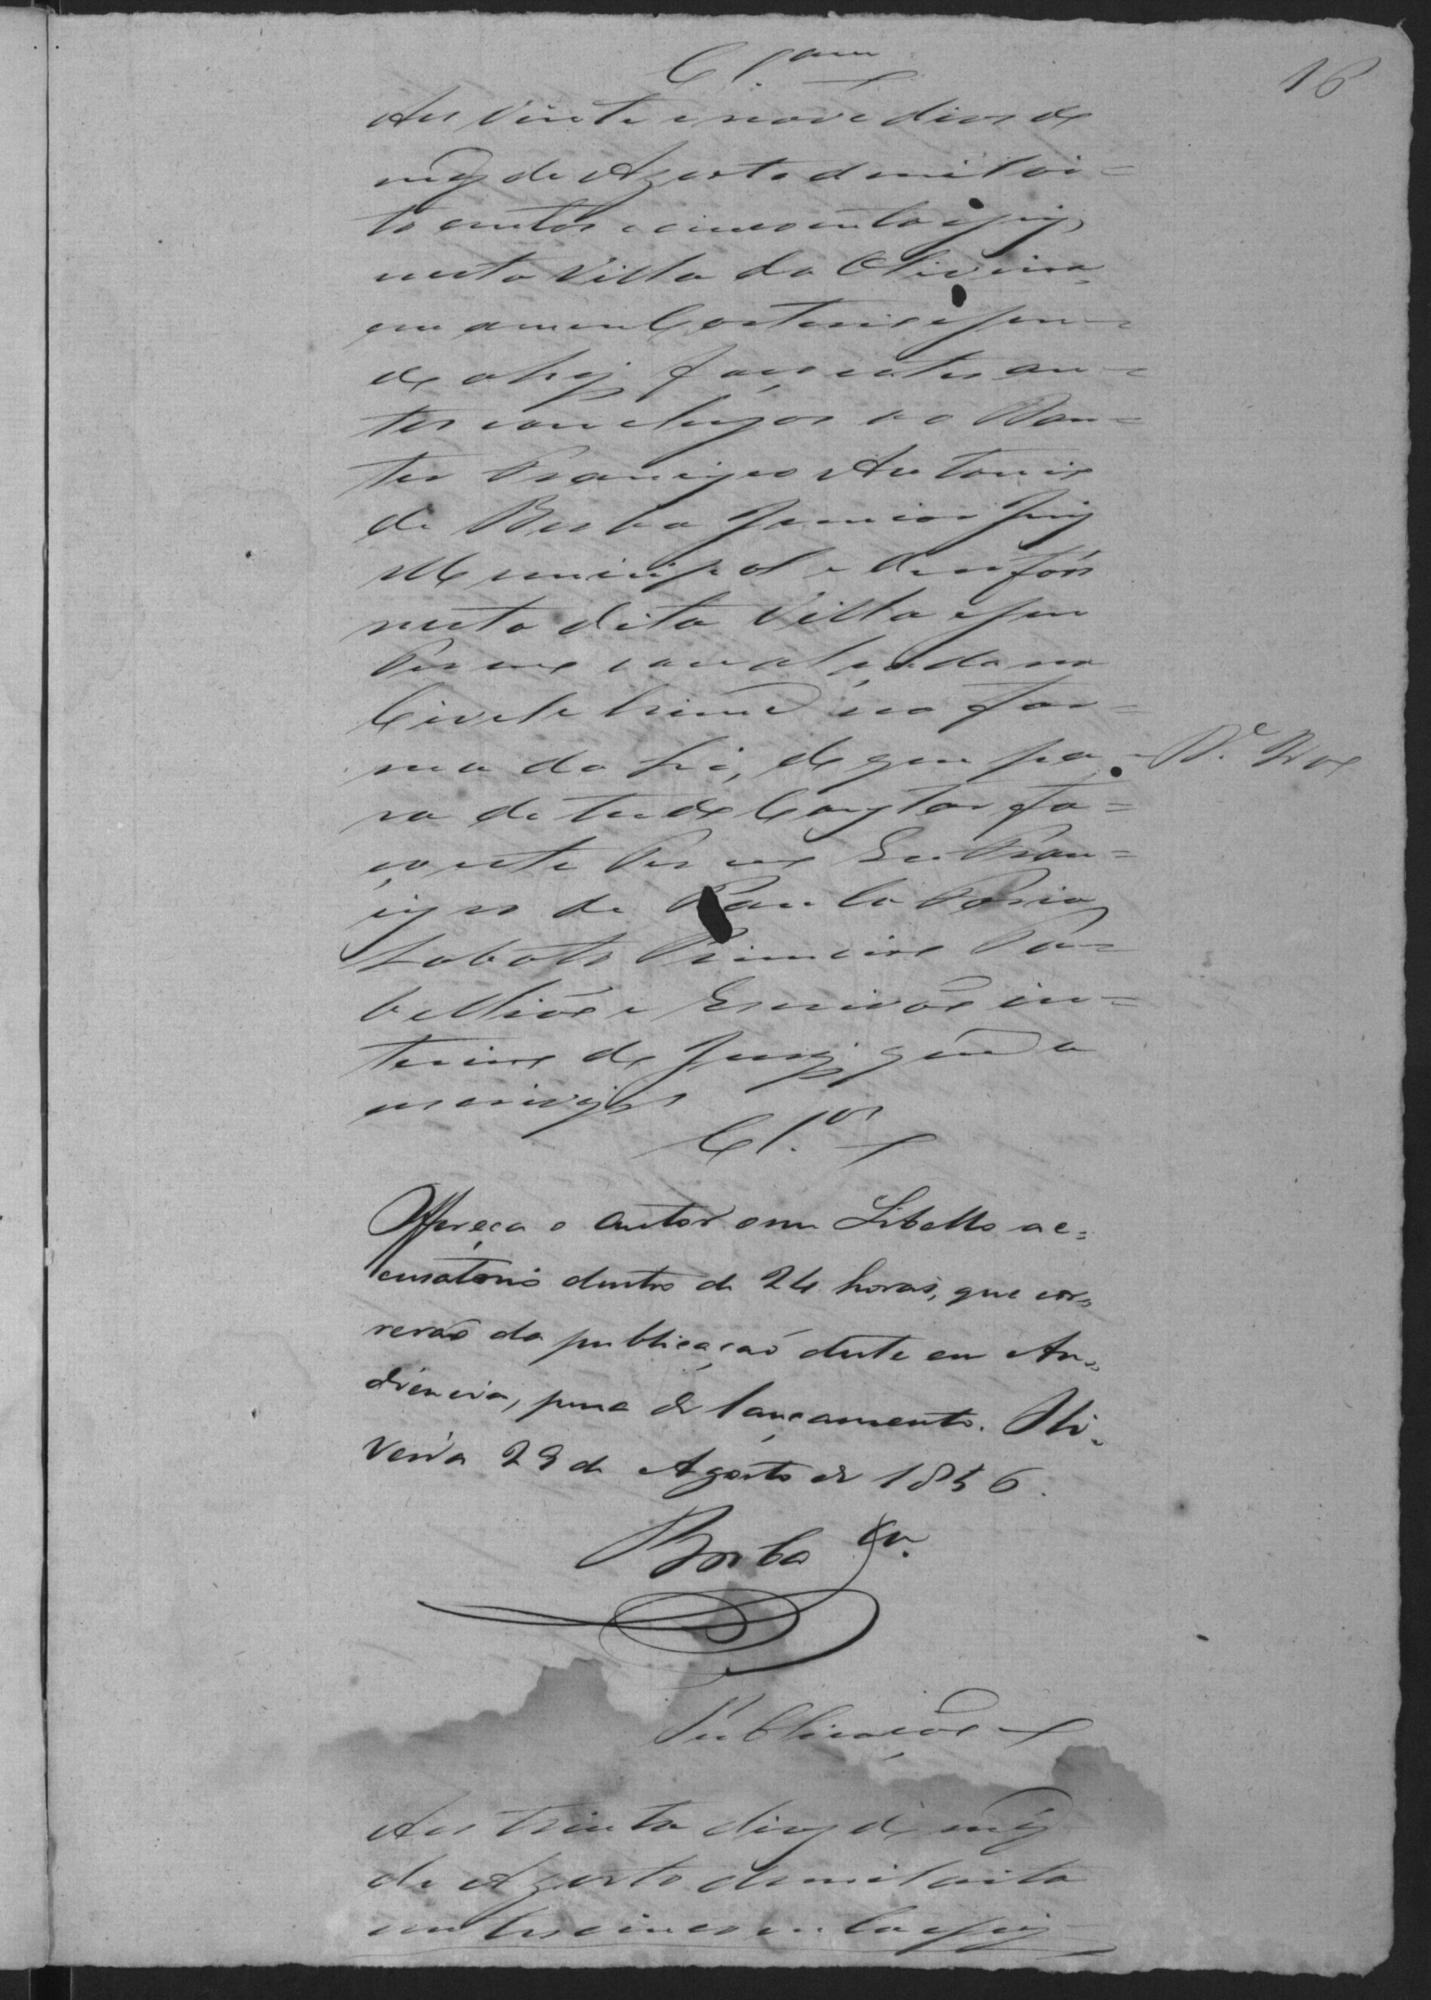 16
Aos vinte e nove dias do
mez de Agosto de mil oi=
to centos e cincoenta e seis
nesta Villa da Oliveira
em o meu Cartorio e sen=
do ahi faço estes au=
tos conclusos ao Dou=
tor Francisco Antonio
de Borba Junior Juiz
Municipal e de orfãos
nesta dita Villa e seu
Termo
Civel e Crime na for=
ma da Lei, do que pa=
ra de tudo constar fa=
ço este Termo Eu Fran=
cisco de Paula
Lobato Primeiro Ta=
bellião e Escrivão in=
terino do Jury que o
escrevi
Cl.os
Offereça o autor o seu Libello ac=
cusatorio dentro de 24 horas, que cor=
rerão da publicação deste em Au=
diencia, pena de lançamento. Oli=
veira 29 de Agosto de 1856.
Borba Jr.
Publicação
Aos trinta dias do mez
de Agosto de mil oito
centos cincoenta e seis